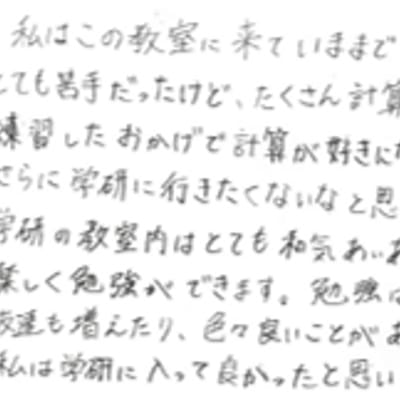 私はこの教室に来ていままで
とても苦手だったけど、たくさん計算
練習したおかげで計算が好きにな
さらに学研に行きたくないなと思
学研の教室内はとても和気あいあ
楽しく勉強ができます。勉強は
友達も増えたり、色々良いことがあ
私は学研に入って良かったと思い